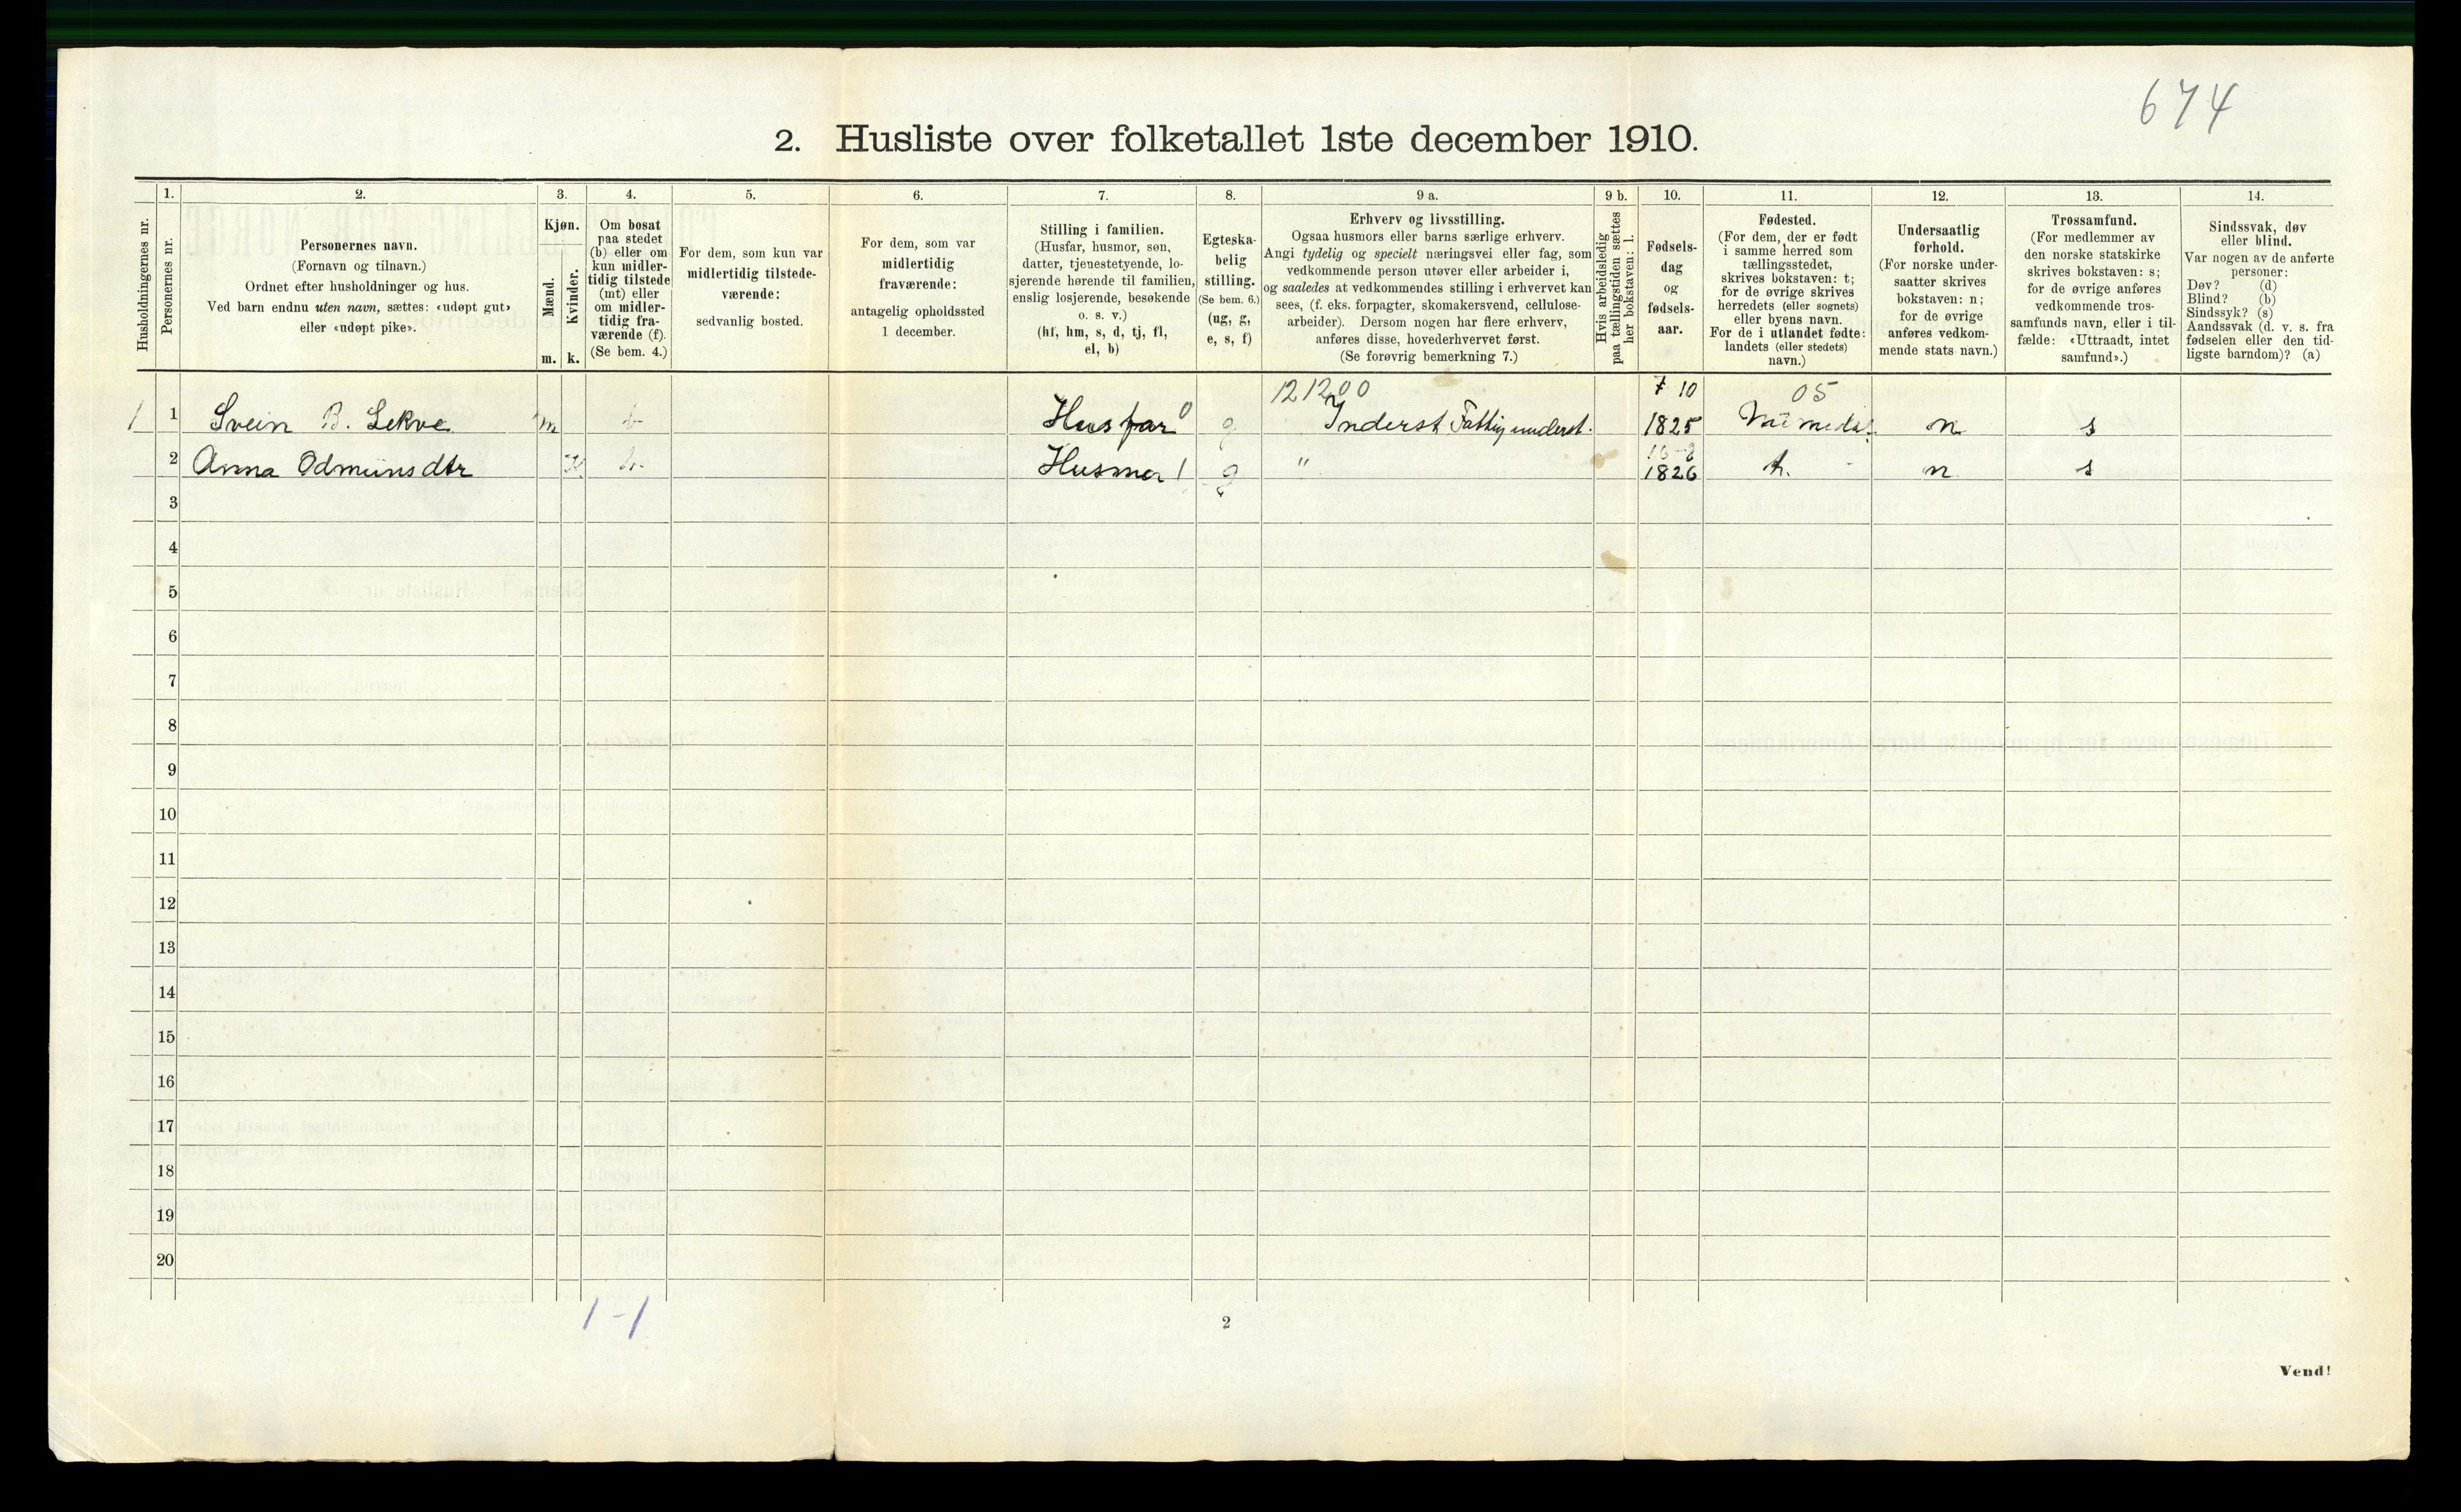 674
2. Husliste over folketallet 1ste december 1910.
Husholdningernes nr.
1.
Personernes nr.
2.
Personernes navn.
(Fornavn og tilnavn.)
Ordnet efter husholdninger og hus.
Ved barn endnu uten navn, sættes: «udøpt gut»
eller «udøpt pike».
3.
Kjøn.
Mænd.
Kvinder.
m. k.
4.
Om bosat
paa stedet
(b) eller om
kun midler-
tidig tilstede
(mt) eller
om midler-
tidig fra-
værende (f).
(Se bem. 4.)
5.
For dem, som kun var
midlertidig tilstede-
værende:
sedvanlig bosted.
6.
For dem, som var
midlertidig
fraværende:
antagelig opholdssted
1 december.
7.
Stilling i familien.
(Husfar, husmor, søn,
datter, tjenestetyende, lo-
sjerende hørende til familien,
enslig losjerende, besøkende
o. s. v.)
(hf, hm, s, d, tj, fl,
el, b)
8.
Egteska-
belig
stilling.
(Se bem. 6.)
(ug, g,
e, s, f)
9 a.
Erhverv og livsstilling.
Ogsaa husmors eller barns særlige erhverv.
Angi tydelig og specielt næringsvei eller fag, som
vedkommende person utøver eller arbeider i,
og saaledes at vedkommendes stilling i erhvervet kan
sees, (f. eks. forpagter, skomakersvend, cellulose-
arbeider). Dersom nogen har flere erhverv,
anføres disse, hovederhvervet først.
(Se forøvrig bemerkning 7.)
9 b.
Hvis arbeidsledig
paa tællingstiden sættes
her bokstaven: l.
10.
Fødsels-
dag
og
fødsels-
aar.
11.
Fødested.
(For dem, der er født
i samme herred som
tællingsstedet,
skrives bokstaven: t;
for de øvrige skrives
herredets (eller sognets)
eller byens navn.
For de i utlandet fødte:
landets (eller stedets)
navn.)
12.
Undersaatlig
forhold.
(For norske under-
saatter skrives
bokstaven: n;
for de øvrige
anføres vedkom-
mende stats navn.)
13.
Trossamfund.
(For medlemmer av
den norske statskirke
skrives bokstaven: s;
for de øvrige anføres
vedkommende tros-
samfunds navn, eller i til-
fælde: «Uttraadt, intet
samfund».)
14.
Sindssvak, døv
eller blind.
Var nogen av de anførte
personer:
Døv? (d)
Blind? (b)
Sindssyk? (s)
Aandssvak (d. v. s. fra
fødselen eller den tid-
ligste barndom)? (a)
121200 7 10 05
1 1 Svein B. Lekve m b Husfar 0 g Inderst Fattigunderst. 1825 n s
2 Anna Odmunsdtr k b Husmor 1 g " 1826 t. n s
3
4
5
6
7
8
9
10
11
12
13
14
15
16
17
18
19
20
1-1
2
Vend!